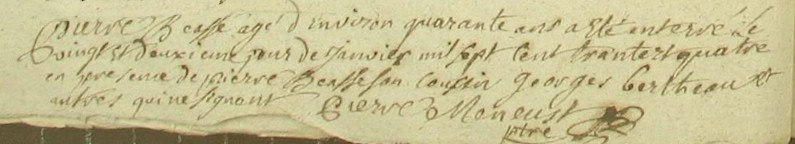 Pierre Beasse agé d'environ quarante ans a eté enterré le
vingt et deuxieme jour de janvier mil sept cent trante et quatre
en presence de pierre Beasse son cousin georges Bertheau et
autres qui ne signant Pierre Meneust
ptre